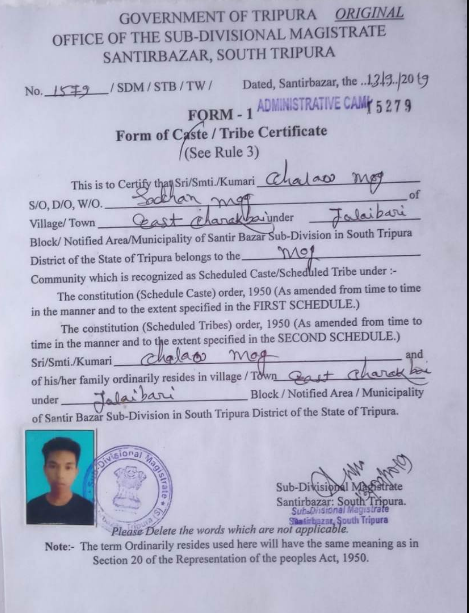 GOVERNMENT OF TRIPURA ORIGINAL
OFFICE OF THE SUB-DIVISIONAL MAGISTRATE
SANTIRBAZAR, SOUTH TRIPURA
No. 1579 / SDM / STB / TW / Dated, Santirbazar, the ..13/9../2019
FORM - 1 ADMINISTRATIVE CAMP 5279
Form of Caste / Tribe Certificate
(See Rule 3)
This is to Certify that Sri/Smti./Kumari Chalaw Mog
S/O, D/O, W/O. Sadhan Mog of
Village/ Town East Charakbai under Jolaibari
Block/ Notified Area/Municipality of Santir Bazar Sub-Division in South Tripura
District of the State of Tripura belongs to the Mog
Community which is recognized as Scheduled Caste/Scheduled Tribe under :-
The constitution (Schedule Caste) order, 1950 (As amended from time to time
in the manner and to the extent specified in the FIRST SCHEDULE.)
The constitution (Scheduled Tribes) order, 1950 (As amended from time to
time in the manner and to the extent specified in the SECOND SCHEDULE.)
Sri/Smti./Kumari Chalaw Mog and
of his/her family ordinarily resides in village / Town East Charakbai
under Jolaibari Block / Notified Area / Municipality
of Santir Bazar Sub-Division in South Tripura District of the State of Tripura.
Sub-Divisional Magistrate
Sub-Divisional Magistrate
Santirbazar: South Tripura.
Sub-Divisional Magistrate
Santirbazar, South Tripura
Please Delete the words which are not applicable.
Note:- The term Ordinarily resides used here will have the same meaning as in
Section 20 of the Representation of the peoples Act, 1950.